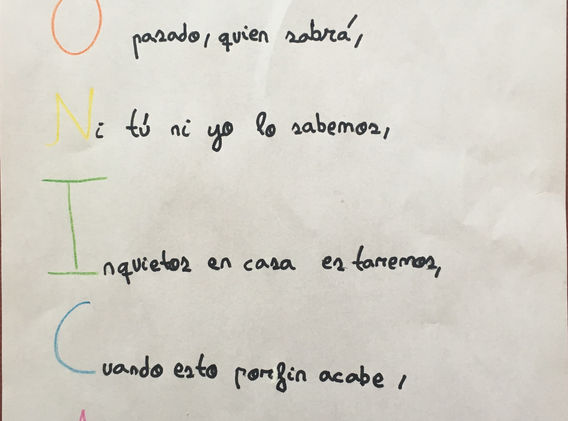 O pasado, quien sabrá,
Ni tú ni yo lo sabemos,
Inquietos en casa estaremos,
Cuando esto porfin acabe,